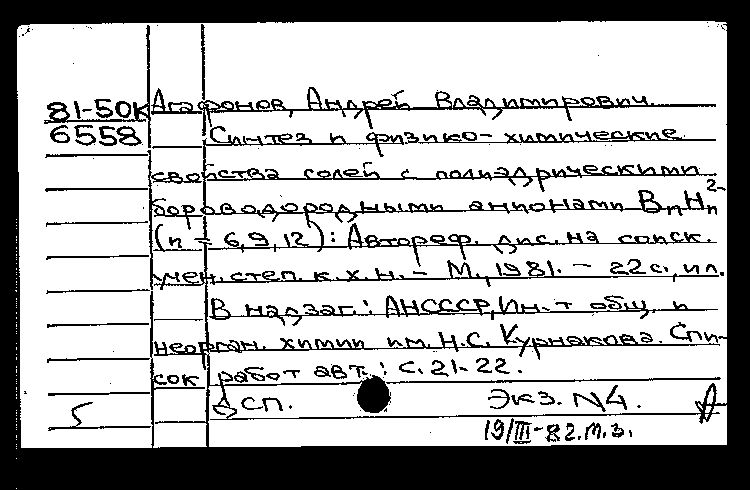 81-50К Агафонов, Андрей Владимирович.
6558 Синтез и физико-химические
свойства солей с полиэдрическими
бороводородными анионами BnHn2-
(n = 6,9,12): Автореф. дис. на соиск.
учен. степ. к. х. н. - М., 1981. - 22 с., ил.
В надзаг.: АНСССР, Ин-т общ. и
неорган. химии им. Н.С. Курнакова. Спи-
сок работ авт.: с. 21-22.
5 ДСП. Экз. N4.
19/III-82.М.З.